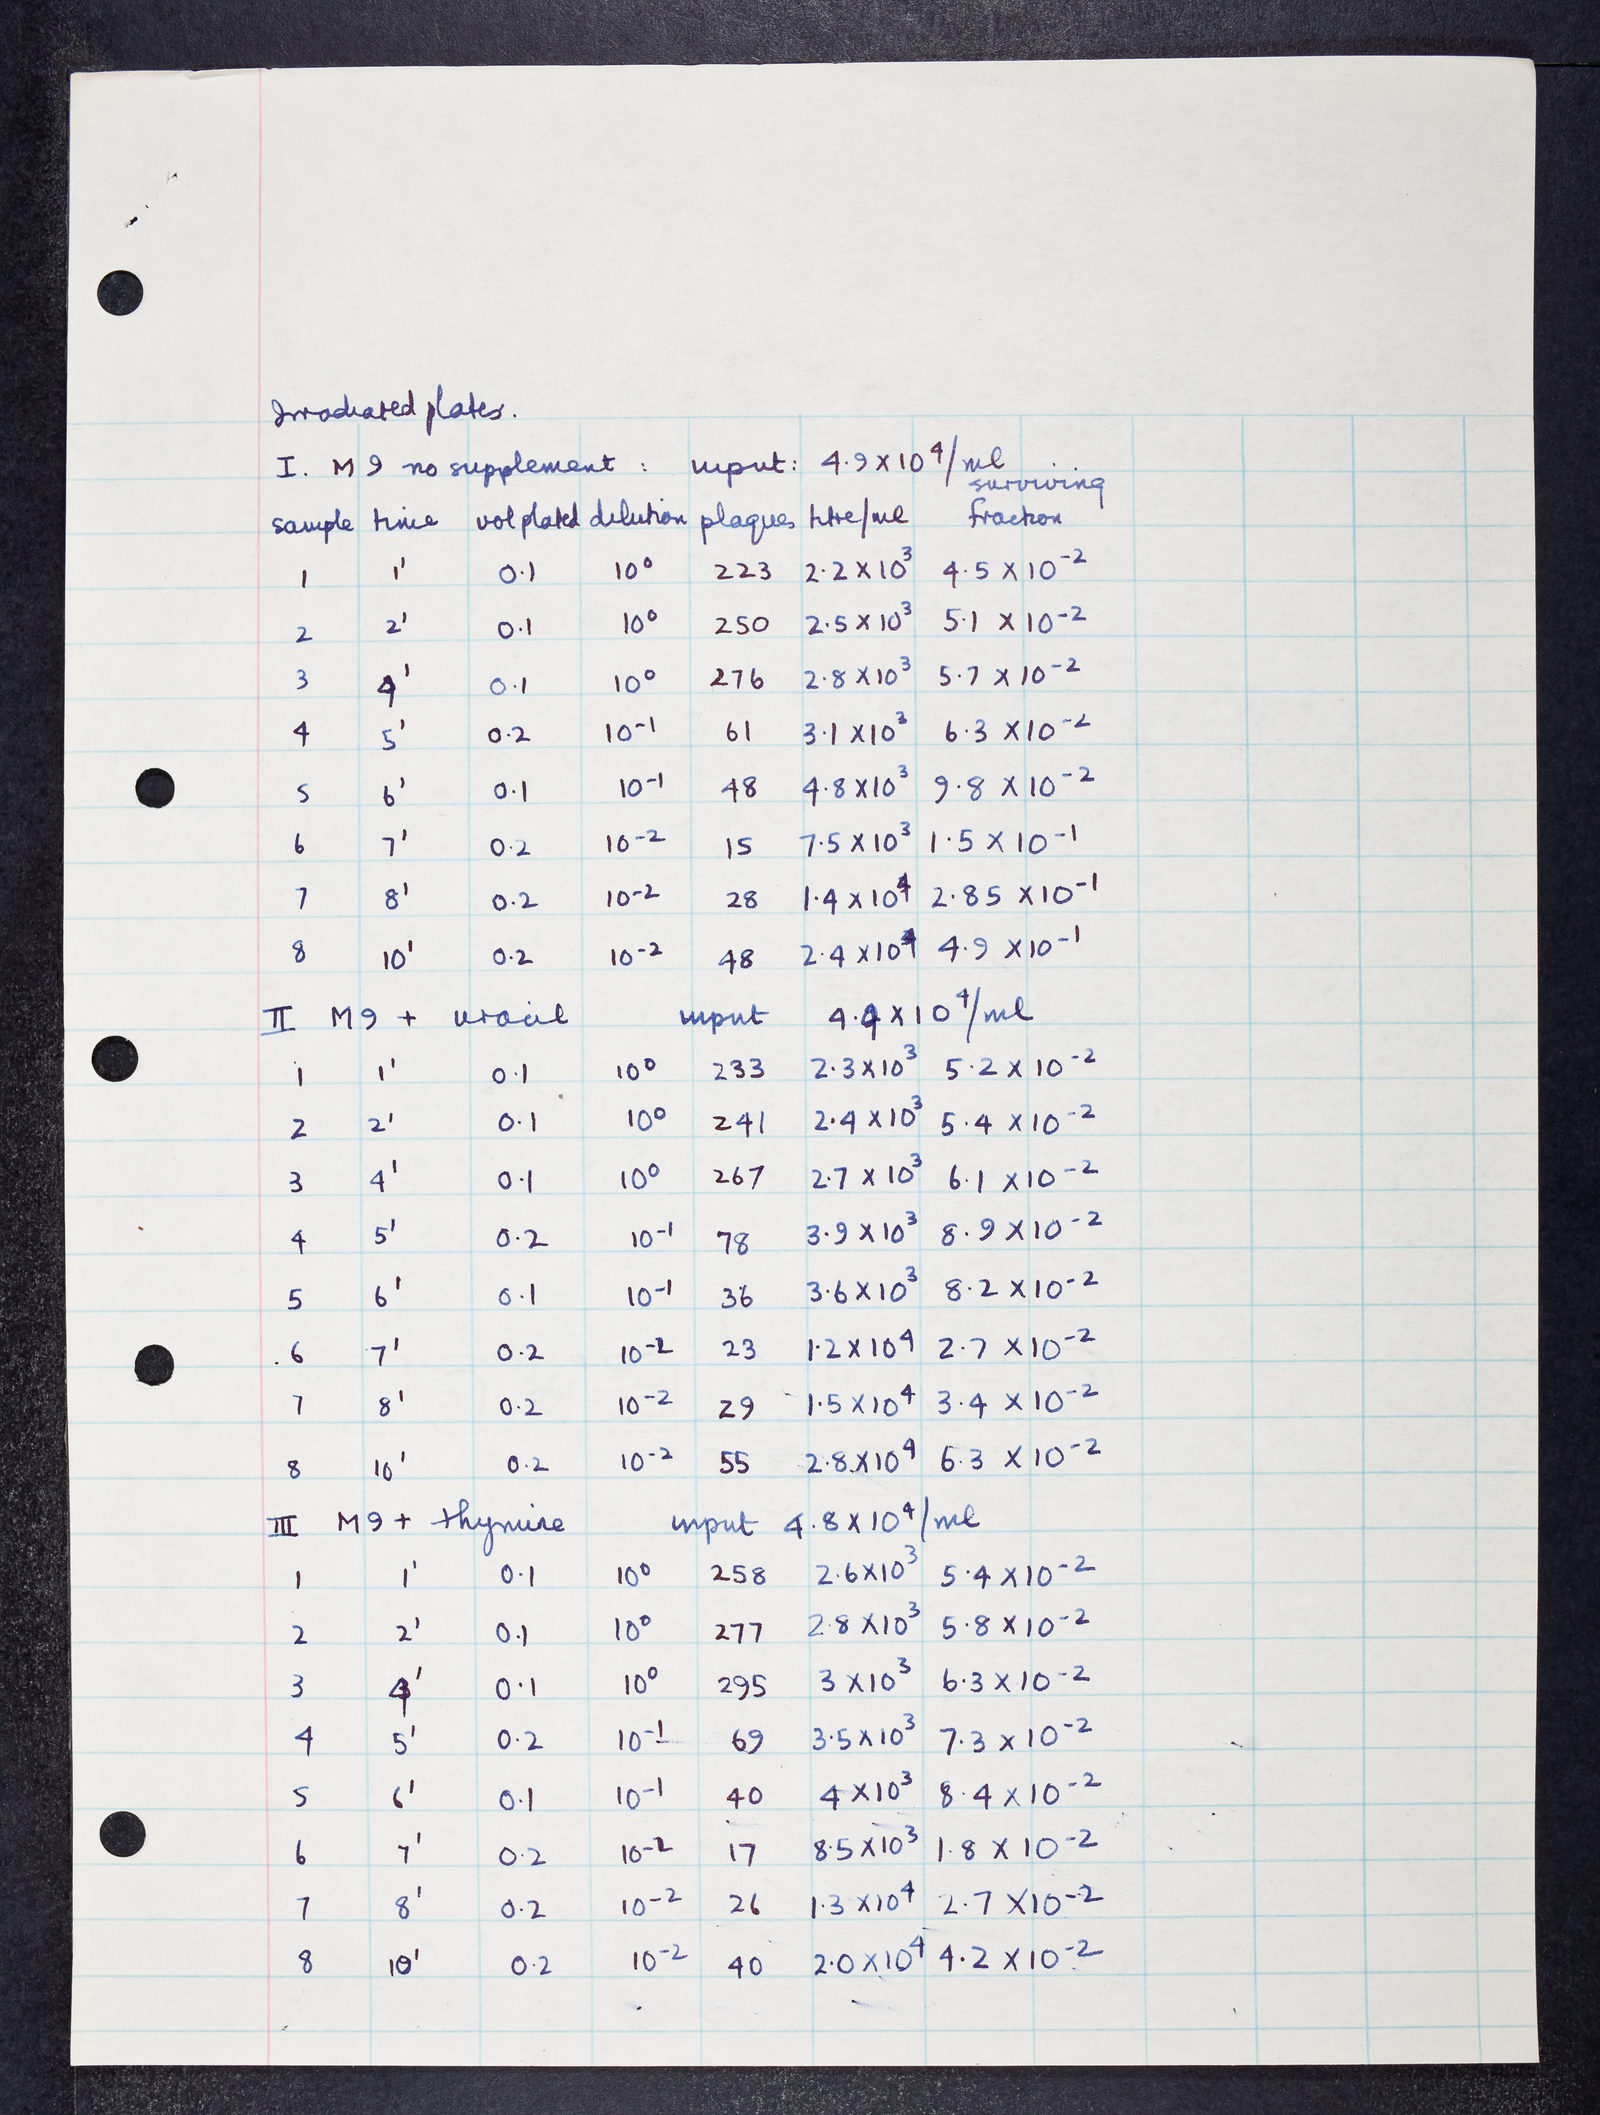 Irradiated plates.
I. M9 no supplement : input: 4.9 x 10⁴/ml
surviving
sample time vol plated dilution plaques titre/ml fraction
1 1' 0.1 10⁰ 223 2.2 x 10³ 4.5 x 10⁻²
2 2' 0.1 10⁰ 250 2.5 x 10³ 5.1 x 10⁻²
3 4' 0.1 10⁰ 276 2.8 x 10³ 5.7 x 10⁻²
4 5' 0.2 10⁻¹ 61 3.1 x 10³ 6.3 x 10⁻²
5 6' 0.1 10⁻¹ 48 4.8 x 10³ 9.8 x 10⁻²
6 7' 0.2 10⁻² 15 7.5 x 10³ 1.5 x 10⁻¹
7 8' 0.2 10⁻² 28 1.4 x 10⁴ 2.85 x 10⁻¹
8 10' 0.2 10⁻² 48 2.4 x 10⁴ 4.9 x 10⁻¹
II M9 + uracil input 4.4 x 10⁴/ml
1 1' 0.1 10⁰ 233 2.3 x 10³ 5.2 x 10⁻²
2 2' 0.1 10⁰ 241 2.4 x 10³ 5.4 x 10⁻²
3 4' 0.1 10⁰ 267 2.7 x 10³ 6.1 x 10⁻²
4 5' 0.2 10⁻¹ 78 3.9 x 10³ 8.9 x 10⁻²
5 6' 0.1 10⁻¹ 36 3.6 x 10³ 8.2 x 10⁻²
6 7' 0.2 10⁻² 23 1.2 x 10⁴ 2.7 x 10⁻²
7 8' 0.2 10⁻² 29 1.5 x 10⁴ 3.4 x 10⁻²
8 10' 0.2 10⁻² 55 2.8 x 10⁴ 6.3 x 10⁻²
III M9 + thymine input 4.8 x 10⁴/ml
1 1' 0.1 10⁰ 258 2.6 x 10³ 5.4 x 10⁻²
2 2' 0.1 10⁰ 277 2.8 x 10³ 5.8 x 10⁻²
3 4' 0.1 10⁰ 295 3 x 10³ 6.3 x 10⁻²
4 5' 0.2 10⁻¹ 69 3.5 x 10³ 7.3 x 10⁻²
5 6' 0.1 10⁻¹ 40 4 x 10³ 8.4 x 10⁻²
6 7' 0.2 10⁻² 17 8.5 x 10³ 1.8 x 10⁻²
7 8' 0.2 10⁻² 26 1.3 x 10⁴ 2.7 x 10⁻²
8 10' 0.2 10⁻² 40 2.0 x 10⁴ 4.2 x 10⁻²